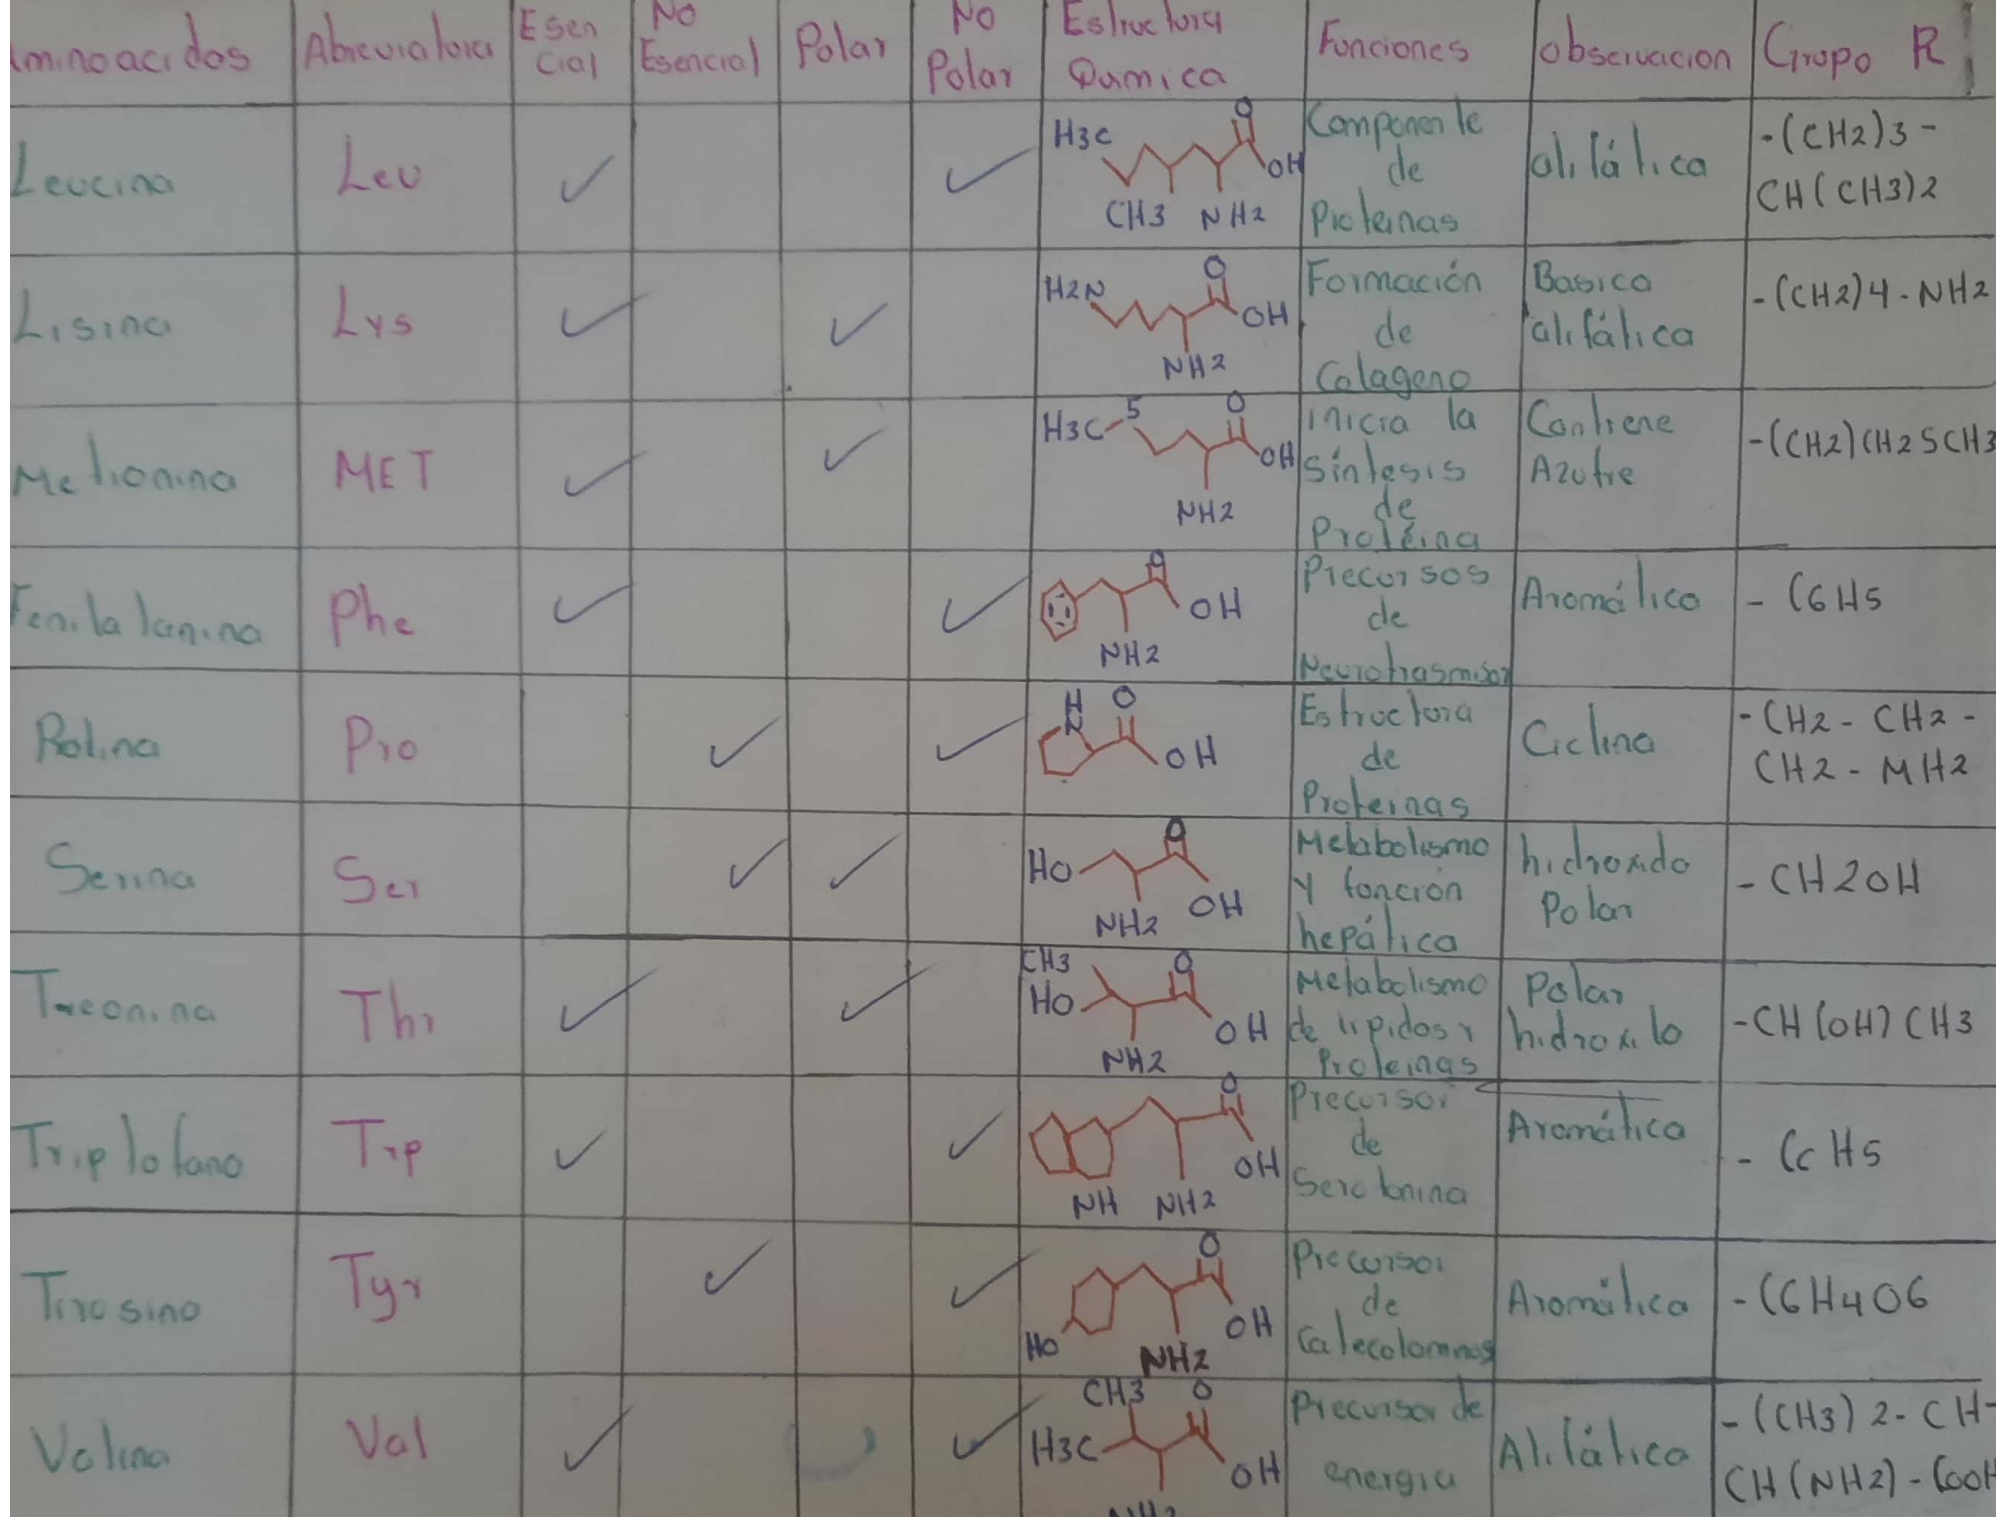 Aminoacidos Abreviatura Esen cial No Esencial Polar No Polar Estructura Quimica Funciones Observacion Grupo R
Leucina Leu ✓ ✓ H3C O OH CH3 NH2 Componente de Proteinas alifática -(CH2)3-CH(CH3)2
Lisina Lys ✓ ✓ H2N O OH NH2 Formación de Colageno Basico alifática -(CH2)4-NH2
Metionina MET ✓ ✓ H3C-S O OH NH2 inicia la Síntesis de Proteina Contiene Azufre -(CH2)CH2SCH3
Fenilalanina Phe ✓ ✓ O OH NH2 Precursos de Neurotrasmisor Aromático - C6H5
Rolina Pro ✓ ✓ H N O OH Estructura de Proteinas Ciclina -CH2-CH2-CH2-MH2
Serina Ser ✓ ✓ HO O NH2 OH Metabolismo y función hepática hidroxido Polar -CH2OH
Treonina Thr ✓ ✓ CH3 HO O OH NH2 Metabolismo de lipidos y Proteinas Polar hidroxilo -CH(OH)CH3
Triptofano Trp ✓ ✓ O OH NH NH2 Precursor de Serotonina Aromática
Tirosino Tyr ✓ ✓ O OH HO NH2 Precursor de Aromática -C6H4O6
Valina Val ✓ ✓ CH3 O H3C OH NH2 Precursor de energia Alifática -(CH3)2-CH-CH(NH2)-COOH